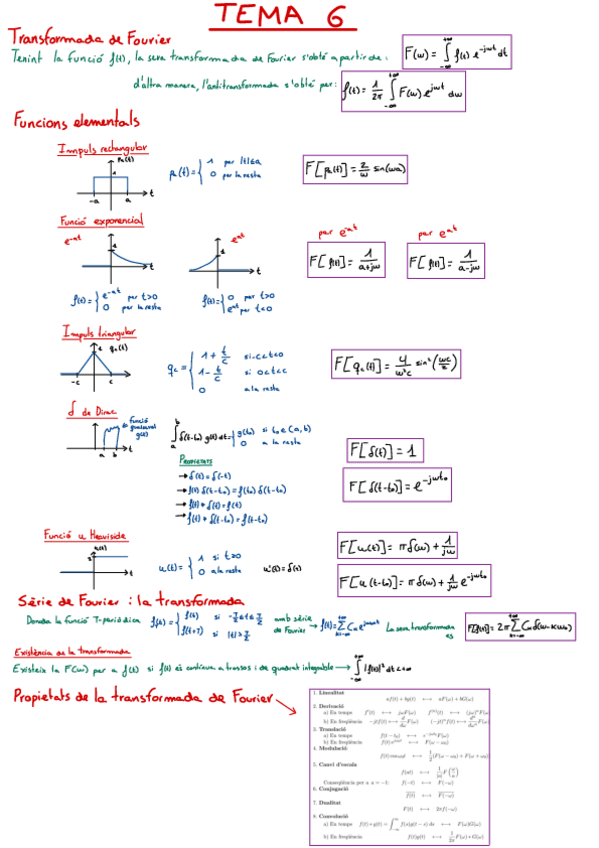 TEMA 6
Transformada de Fourier
Tenint la funció f(t), la seva transformada de Fourier s'obté a partir de: F(ω) = ∫_{-∞}^{+∞} f(t) e^{-jωt} dt
d'altra manera, l'antitransformada s'obté per: f(t) = 1/2π ∫_{-∞}^{+∞} F(ω) e^{jωt} dω
Funcions elementals
Impuls rectangular
Pa(t)
1
-a a t
Pa(t) = { 1 per |t|≤a
0 per la resta
F[Pa(t)] = 2/ω sin(ωa)
Funció exponencial
e^{-at}
1
t
e^{at}
1
t
per e^{-at}
per e^{at}
F[f(t)] = 1/(a+jω)
F[f(t)] = 1/(a-jω)
f(t) = { e^{-at} per t>0
0 per la resta
f(t) = { 0 per t>0
e^{at} per t<0
Impuls triangular
1 qc(t)
-c c t
qc = { 1 + t/c si -c<t<0
1 - t/c si 0<t<c
0 a la resta
F[qc(t)] = 4/(ω²c) sin²(ωc/2)
δ de Dirac
funció
qualsevol
g(t)
a b t
∫_a^b δ(t-t₀) g(t) dt = { g(t₀) si t₀ ∈ (a,b)
0 a la resta
F[δ(t)] = 1
PROPIETATS
→ δ(t) = δ(-t)
→ f(t) δ(t-t₀) = f(t₀) δ(t-t₀)
→ f(t) * δ(t) = f(t)
→ f(t) * δ(t-t₀) = f(t-t₀)
F[δ(t-t₀)] = e^{-jωt₀}
Funció u Heaviside
u(t)
t
u(t) = { 1 si t≥0
0 a la resta
u'(t) = δ(t)
F[u(t)] = πδ(ω) + 1/jω
F[u(t-t₀)] = πδ(ω) + 1/jω e^{-jωt₀}
Sèrie de Fourier i la transformada
Donada la funció T-periòdica f(t) = { f(t) si -T/2≤t≤T/2
f(t+T) si |t|>T/2
amb sèrie
de Fourier → f(t) = Σ_{k=-∞}^{+∞} Cₖ e^{jkω₀t} La seva transformada
es F[f(t)] = 2π Σ_{k=-∞}^{+∞} Cₖ δ(ω-kω₀)
Existència de la transformada
Existeix la F(ω) per a f(t) si f(t) és contínua a trossos i de quadrat integrable → ∫_{-∞}^{+∞} |f(t)|² dt < +∞
Propietats de la transformada de Fourier
1. Linealitat
af(t) + bg(t) ⟷ aF(ω) + bG(ω)
2. Derivació
a) En temps f'(t) ⟷ jωF(ω) f⁽ⁿ⁾(t) ⟷ (jω)ⁿF(ω)
b) En freqüència -jtf(t) ⟷ d/dω F(ω) (-jt)ⁿf(t) ⟷ dⁿ/dωⁿ F(ω)
3. Translació
a) En temps f(t - t₀) ⟷ e^{-jωt₀}F(ω)
b) En freqüència f(t)e^{jω₀t} ⟷ F(ω - ω₀)
4. Modulació
f(t) cos ω₀t ⟷ 1/2 (F(ω - ω₀) + F(ω + ω₀))
5. Canvi d'escala
f(at) ⟷ 1/|a| F(ω/a)
Conseqüència per a a = -1: f(-t) ⟷ F(-ω)
6. Conjugació
f(t) ⟷ F(-ω)
7. Dualitat
F(t) ⟷ 2πf(-ω)
8. Convolució
a) En temps f(t) * g(t) = ∫_{-∞}^{∞} f(s)g(t - s) ds ⟷ F(ω)G(ω)
b) En freqüència f(t)g(t) ⟷ 1/2π F(ω) * G(ω)